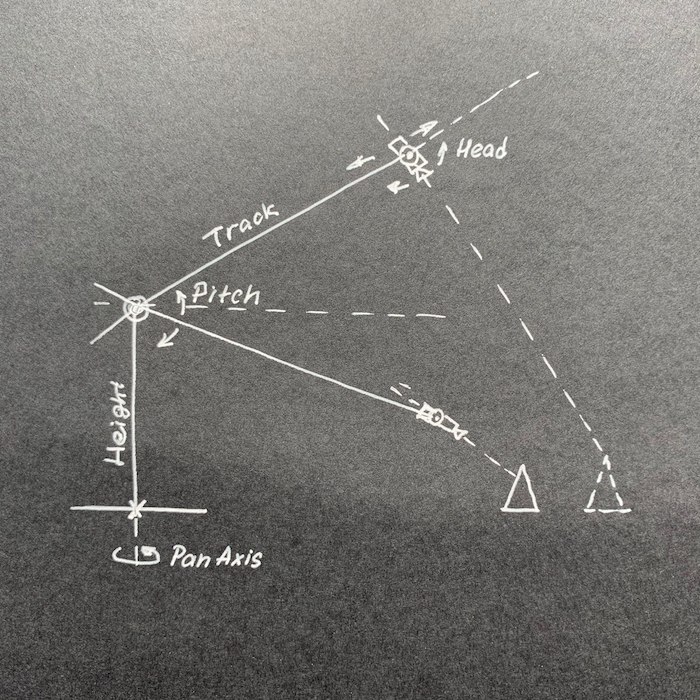 Head
Track
Pitch
Height
Pan Axis